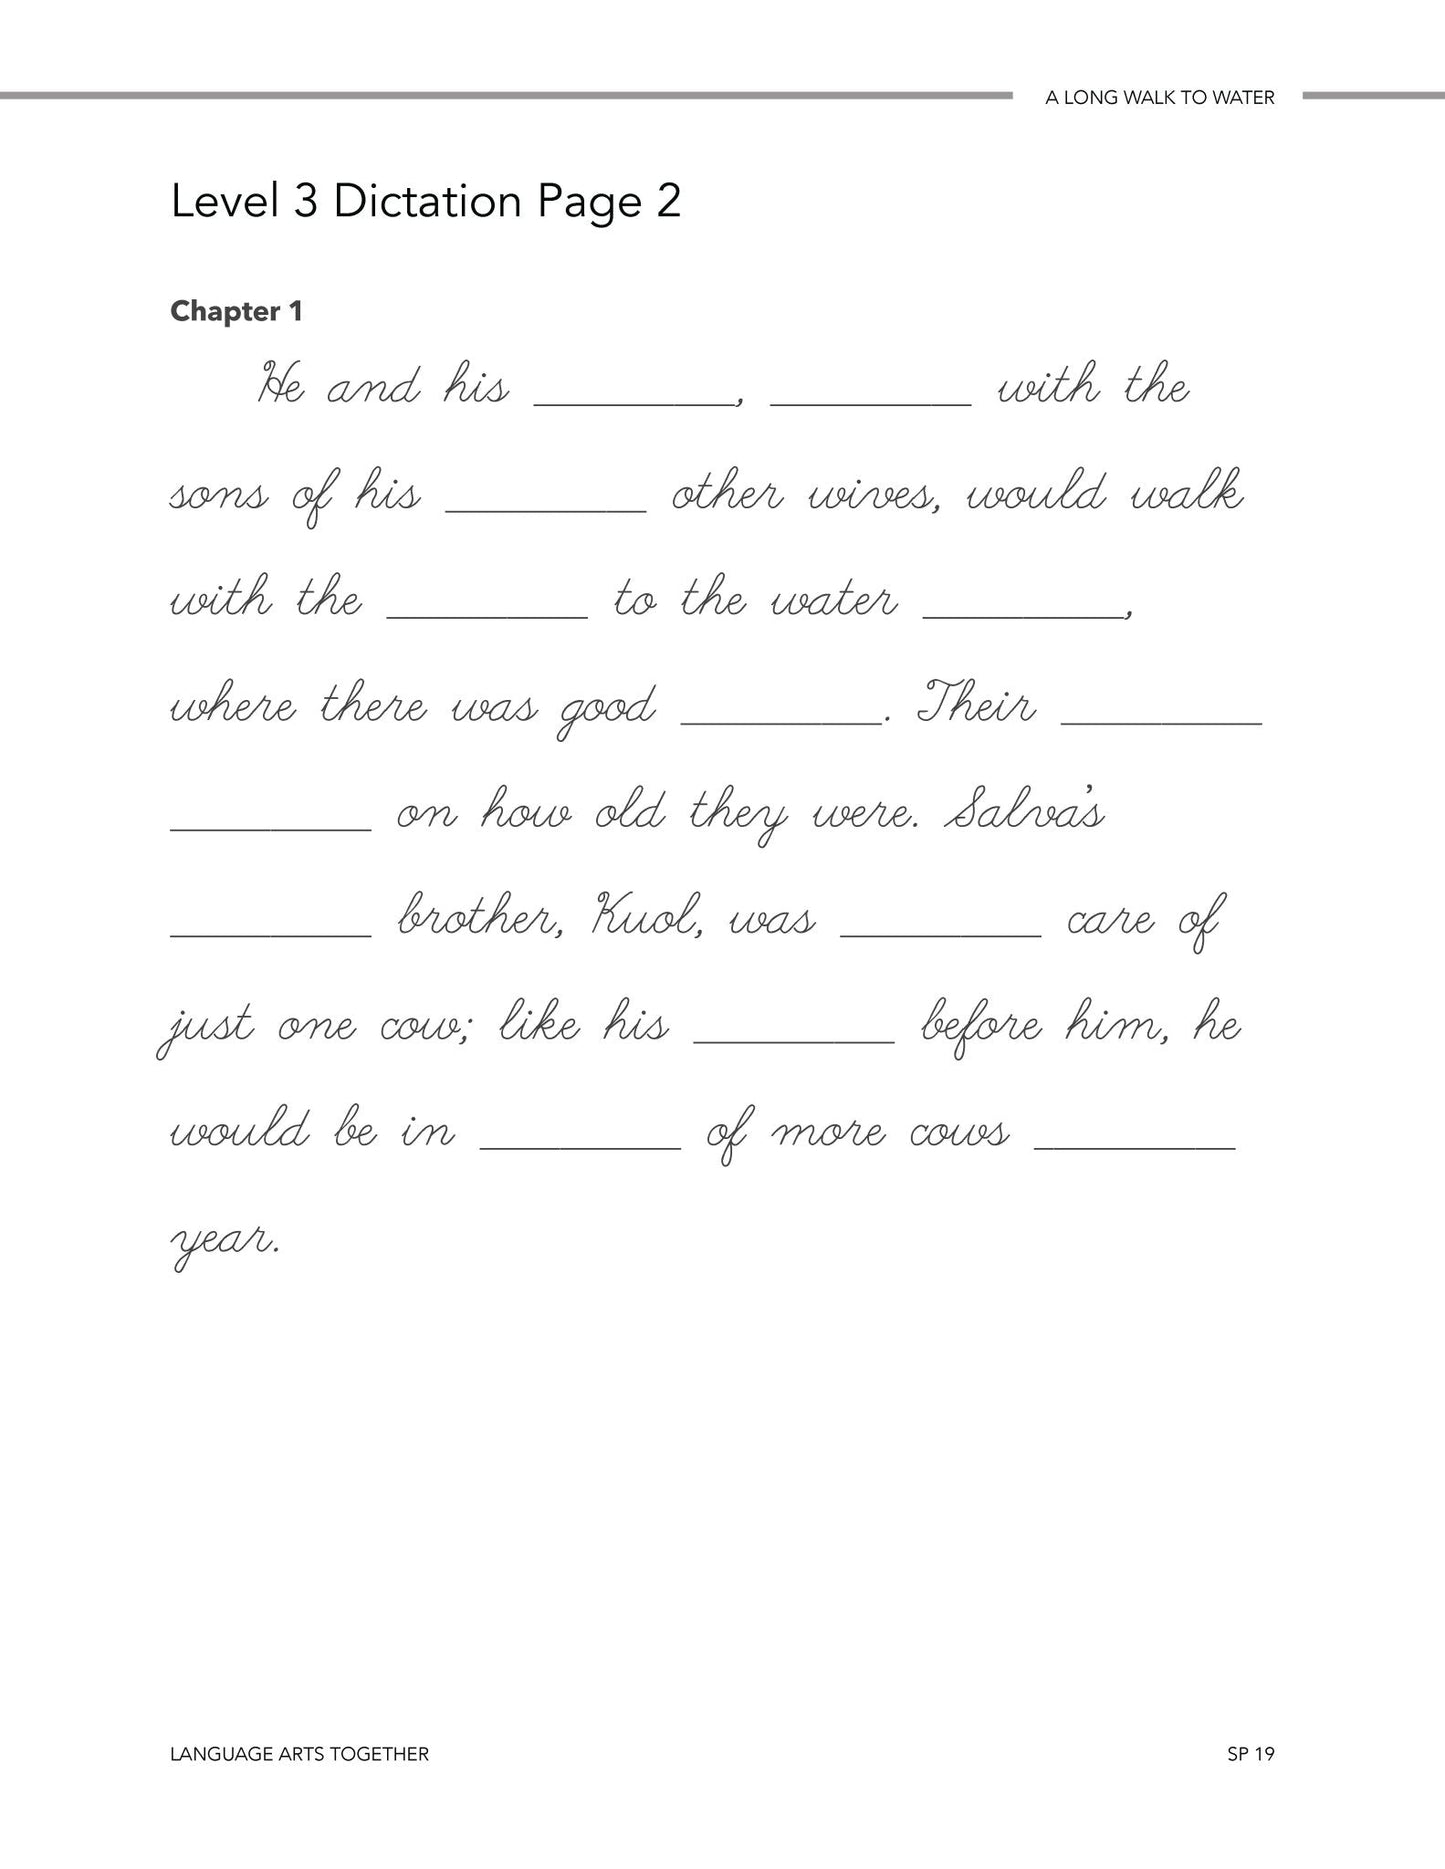 A LONG WALK TO WATER
Level 3 Dictation Page 2
Chapter 1
He and his __________, __________ with the
sons of his __________ other wives, would walk
with the __________ to the water __________,
where there was good __________. Their __________
__________ on how old they were. Salva's
__________ brother, Kuol, was __________ care of
just one cow; like his __________ before him, he
would be in __________ of more cows __________
year.
LANGUAGE ARTS TOGETHER SP 19